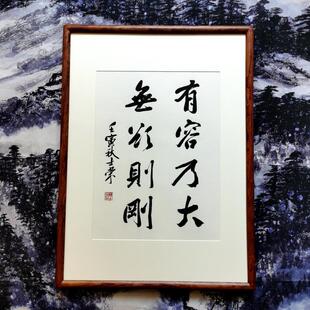 有容乃大
無欲則剛
壬寅秋士榮